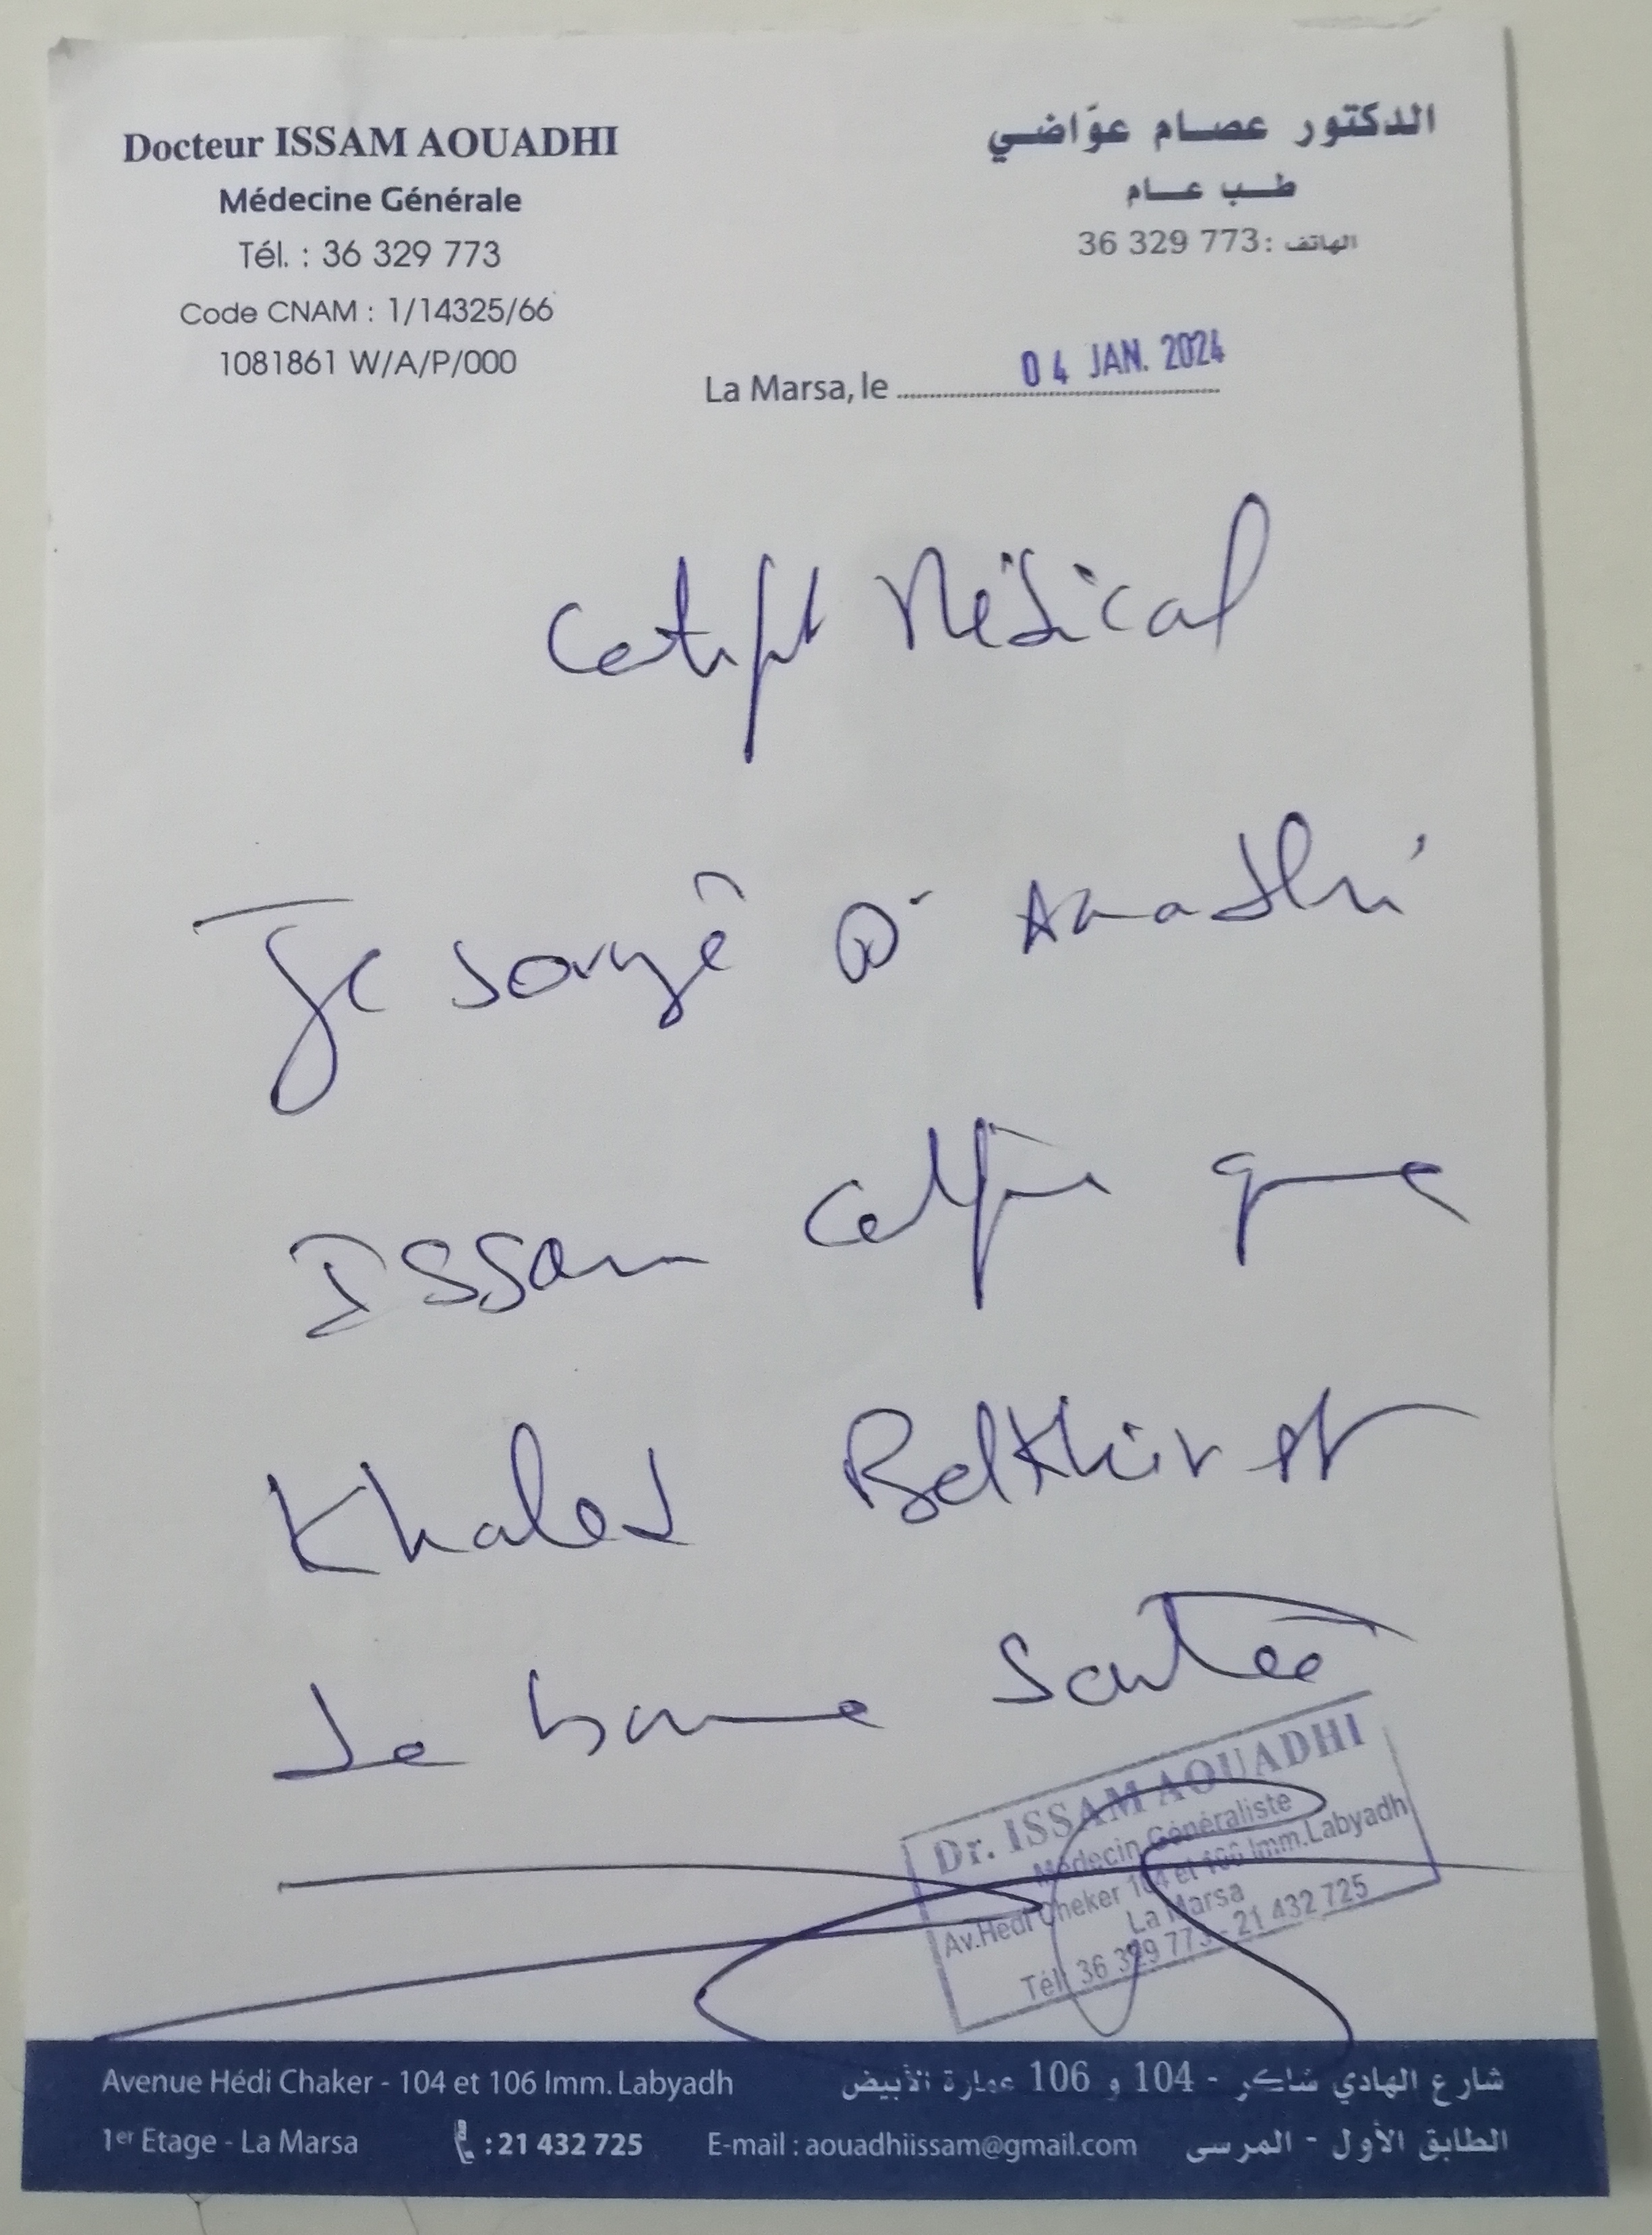 Docteur ISSAM AOUADHI
Médecine Générale
Tél. : 36 329 773
Code CNAM : 1/14325/66
1081861 W/A/P/000
الدكتور عصام عوّاضي
طب عام
الهاتف :36 329 773
La Marsa, le 04 JAN. 2024
Certificat Médical
Je soussigné Dr Aouadhi
Issam certifie que
Khaled Belkhir est
de bonne Santé
Dr. ISSAM AOUADHI
Médecin Généraliste
Av.Hedi Cheker 104 et 106 Imm.Labyadh
La Marsa
Tél: 36 329 773 - 21 432 725
Avenue Hédi Chaker - 104 et 106 Imm. Labyadh
1er Etage - La Marsa : 21 432 725 E-mail : aouadhiissam@gmail.com
شارع الهادي شاكر - 104 و 106 عمارة الأبيض
الطابق الأول - المرسى